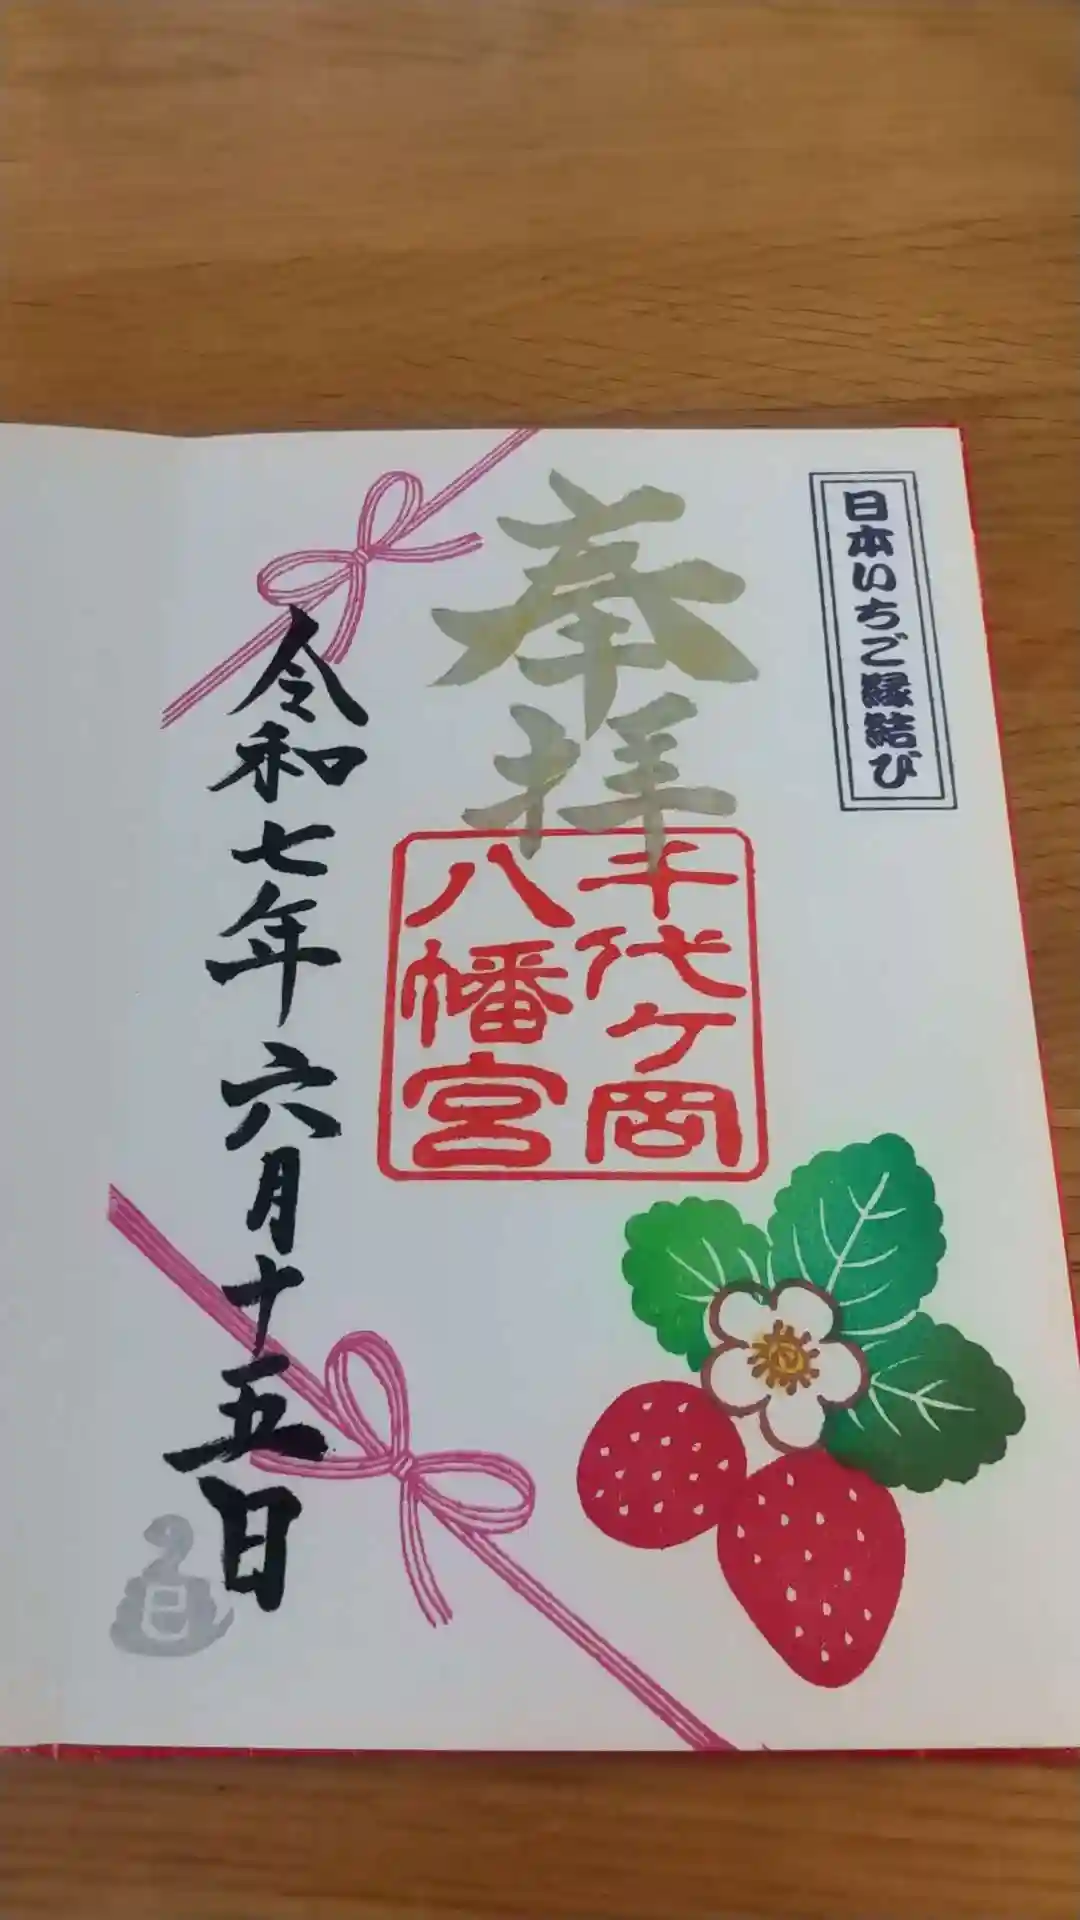 日本いちご縁結び
奉拝
千代ヶ岡
八幡宮
令和七年六月十五日
巳